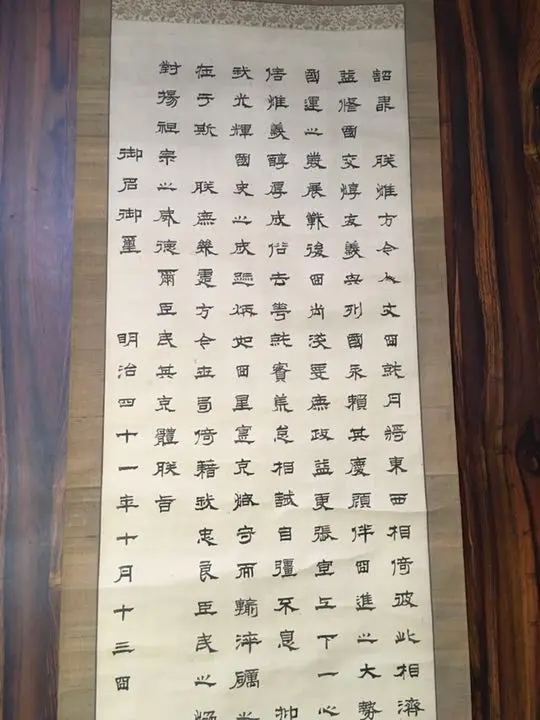 詔書 朕惟方今人文日就月將東西相倚彼此相濟
益修國交惇友義與列國永賴其慶顧伴日進之大勢
國運之發展戰後日尚淺要庶政益更張宜上下一心
信惟義醇厚成俗去華就實荒怠相誡自彊不息 抑
我光輝國史之成跡炳如日星寔克恪守而輸淬礪之
在于斯 朕庶幾處方今世局倚藉我忠良臣民之協
對揚祖宗之威德爾臣民其克體朕旨
御名御璽 明治四十一年十月十三日